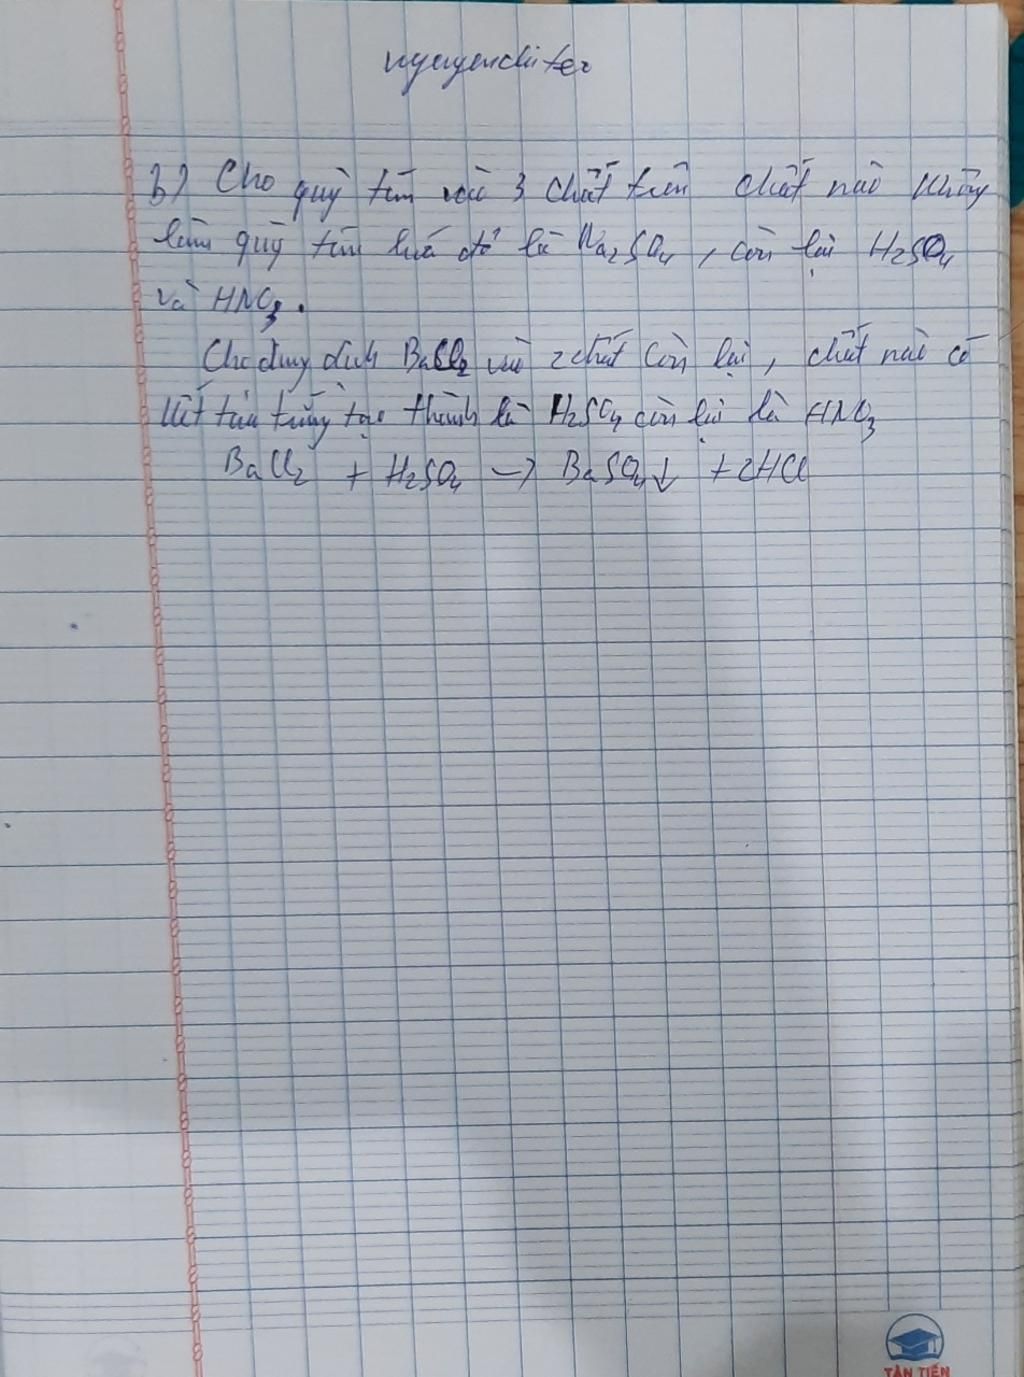 nguyenchitez
b) Cho quỳ tím vào 3 chất trên chất nào không
làm quỳ tím hoá đỏ là Na2SO4, còn lại H2SO4
và HNO3.
Cho dung dịch BaCl2 vào 2 chất còn lại, chất nào có
kết tủa trắng tạo thành là H2SO4 còn lại là HNO3
BaCl2 + H2SO4 → BaSO4↓ + 2HCl
TÂN TIẾN